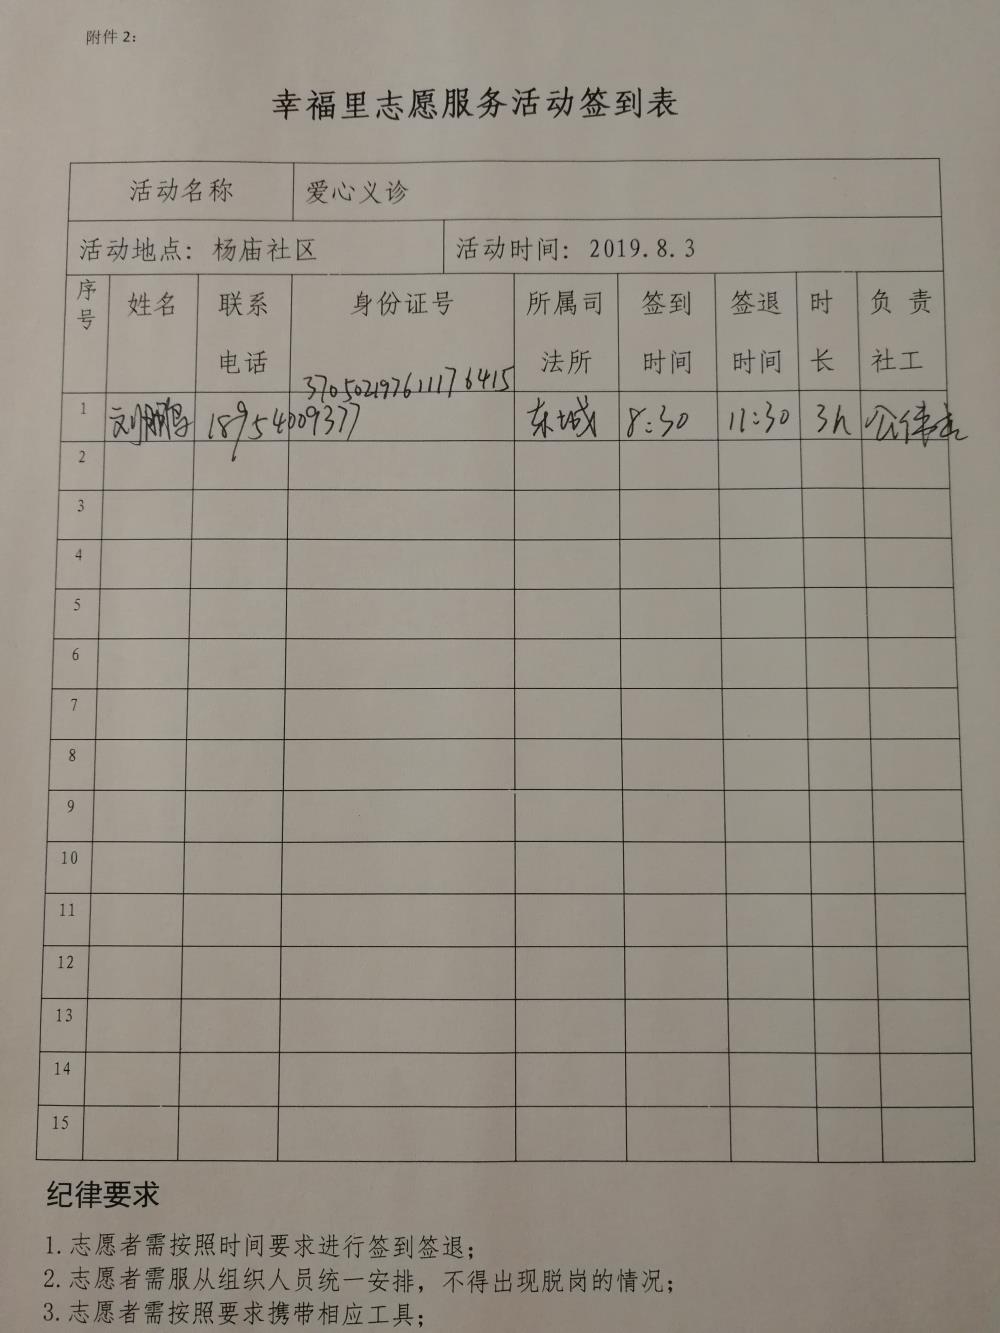 附件 2：
幸福里志愿服务活动签到表
活动名称 爱心义诊
活动地点： 杨庙社区 活动时间： 2019.8.3
序号 姓名 联系电话 身份证号 所属司法所 签到时间 签退时间 时长 负责社工
370502197611176415
1 刘鹏 18954009377 东城 8:30 11:30 3h
2
3
4
5
6
7
8
9
10
11
12
13
14
15
纪律要求
1.志愿者需按照时间要求进行签到签退；
2.志愿者需服从组织人员统一安排，不得出现脱岗的情况；
3.志愿者需按照要求携带相应工具；